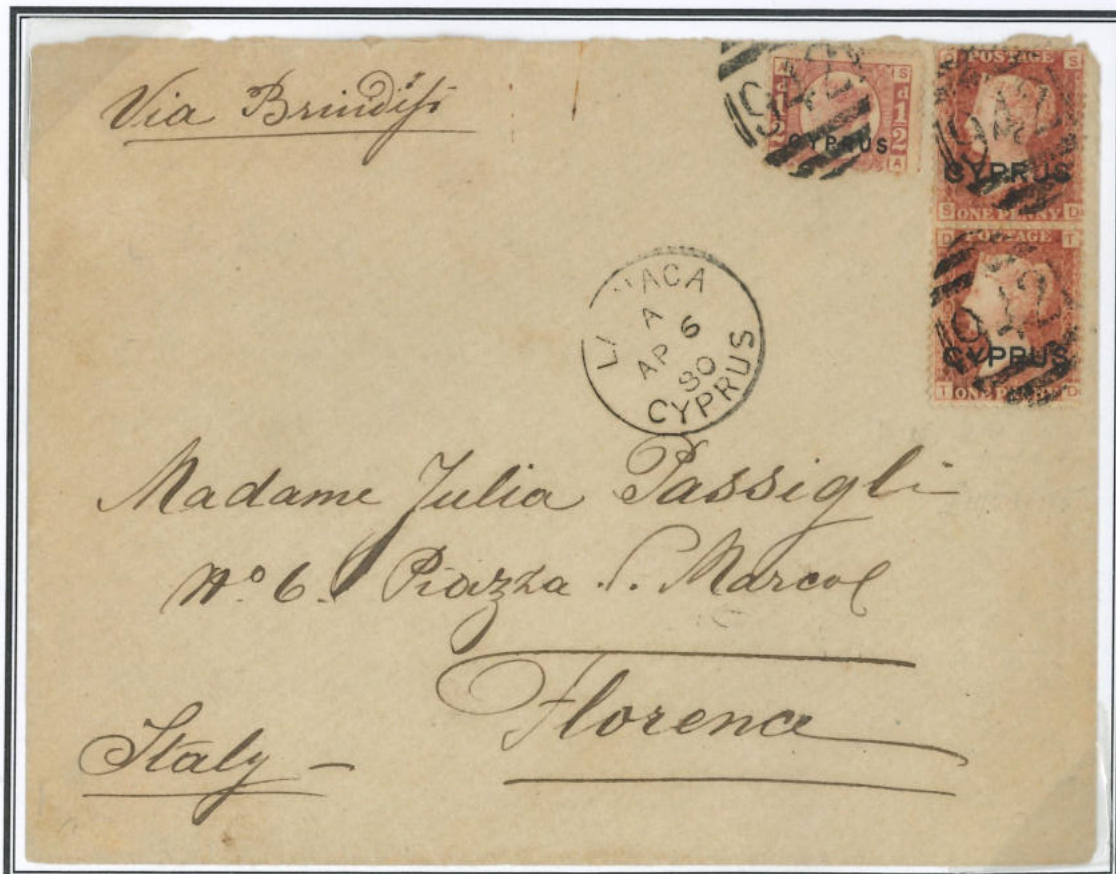 Via Brindisi
942
A S
d 1/2
d 1/2
CYPRUS
A
S
POSTAGE
942
CYPRUS
S ONE PENNY D
D POSTAGE T
942
CYPRUS
T ONE PENNY D
LARNACA
A
AP 6
80
CYPRUS
Madame Julia Passigli
No 6. Piazza S. Marco
Florence
Italy –